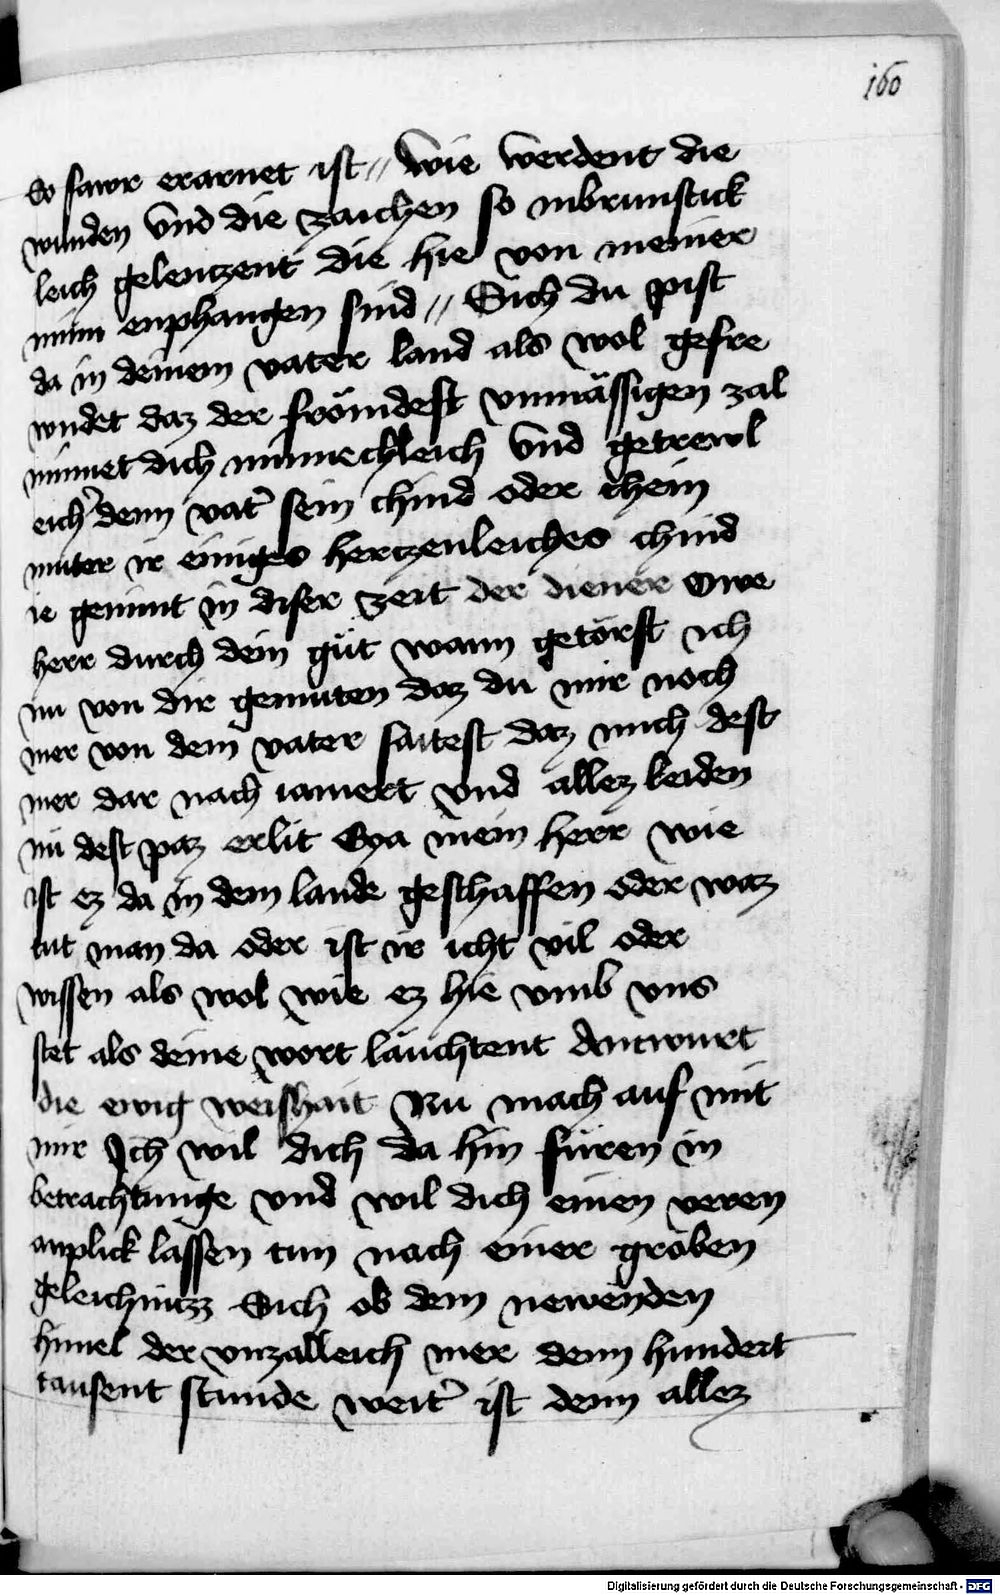 160
So sawr erarnet ist // Wie werdent die
wunden vnd die zaichen so inbrunstick
leich gelenczent die hie von meiner
minn enphangen sind // Sich du pist
da in deinem vater land als wol gefre
wndet daz der frömdest vnmässigen zal
minnet dich minnechleich vnd getrewl
eicher denn vater sein chind oder chein
muter ir einiges herczenleiches chind
ie gemint in diser zeit der diener Owe
herr durch dein güt wann getörst ich
nu von dir gemuten daz du mir noch
mer von dem vater saitest daz mich dest
mer dar nach iamert vnd allez leiden
nu dest paz erlit Eya mein herr wie
ist ez da in dem lande geschaffen oder waz
tut man da oder ist ir icht vil oder
wissen als wol wie ez hie vmb vns
stet als deine wort läuchtent Antwurt
die ewig weishait Nu mach auf mit
mir Ich wil dich da hin füren in
betrachtunge vnd wil dich einen veren
anplick lassen tun nach einer groben
geleichnuzz Sich ob dem newenden
himel der vnzalleich mer denn hundert
tausent stunde weiter ist denn allez
Digitalisierung gefördert durch die Deutsche Forschungsgemeinschaft - DFG